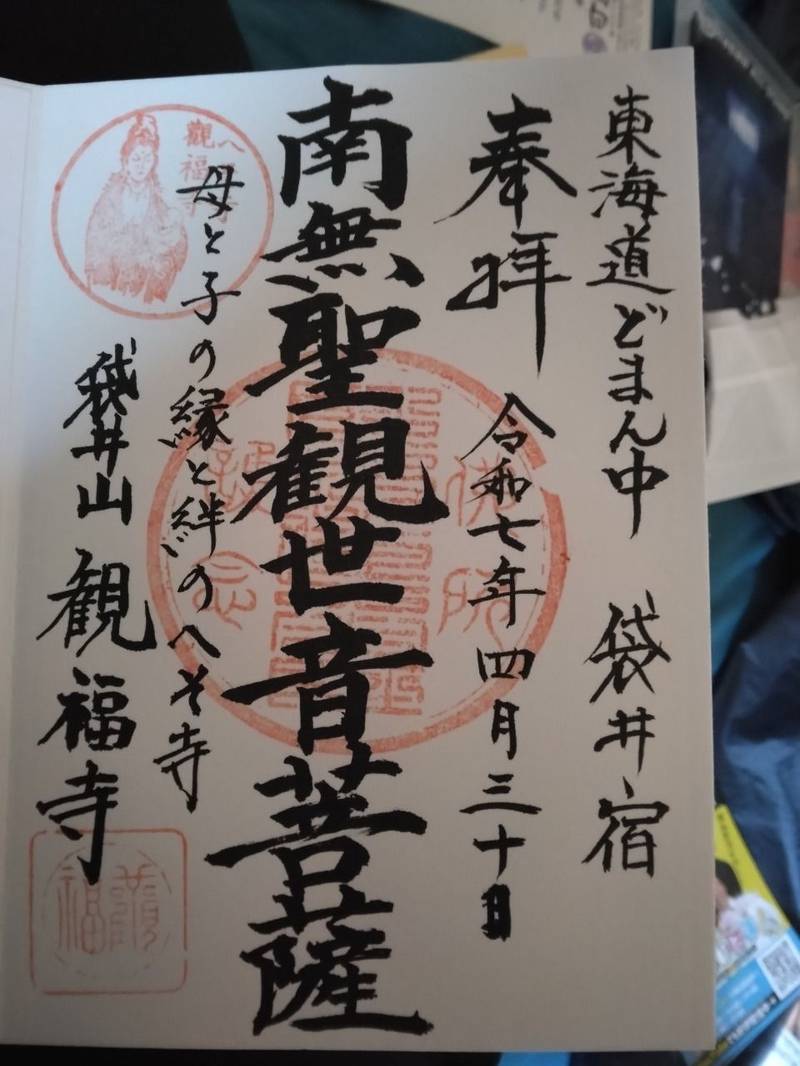 東海道どまん中 袋井宿
奉拝
令和七年四月三十日
南無聖観世音菩薩
母と子の縁と絆のへそ寺
袋井山 観福寺